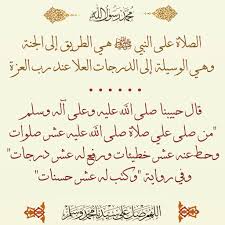 محمد رسول الله
الصلاة على النبي ﷺ هي الطريق إلى الجنة
وهي الوسيلة إلى الدرجات العلا عند رب العزة
قال حبيبنا صلى الله عليه وعلى آله وسلم
"من صلى علي صلاة صلى الله عليه عشر صلوات
وحط عنه عشر خطيئات ورفع له عشر درجات"
وفي رواية "وكتب له عشر حسنات"
اللهم صل على سيدنا محمد وسلم